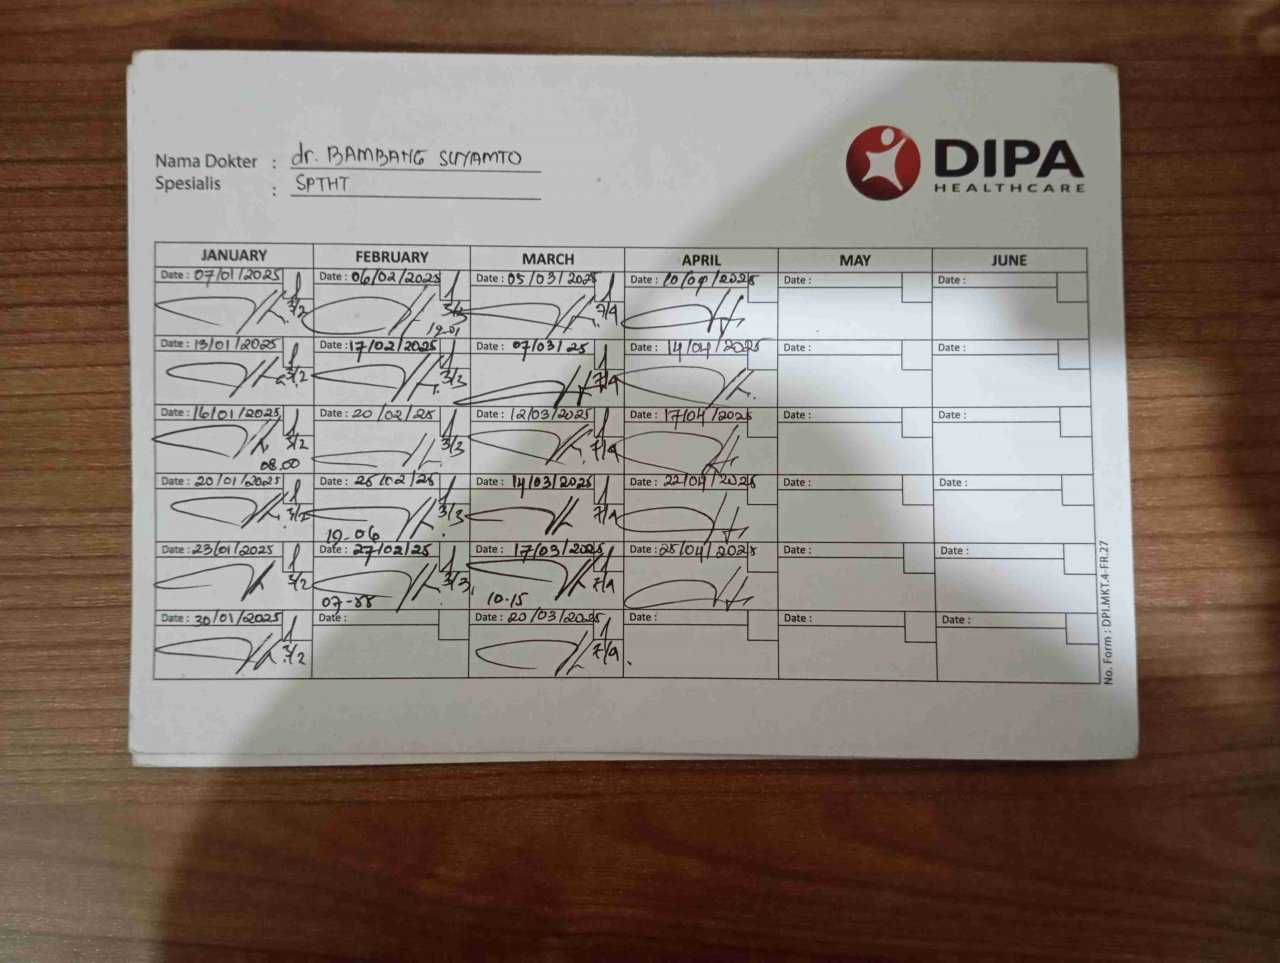 Nama Dokter : dr. BAMBANG SUYAMTO
Spesialis : SPTHT
DIPA
HEALTHCARE
JANUARY FEBRUARY MARCH APRIL MAY JUNE
Date : 07/01/2025 Date : 06/02/2025 Date : 05/03/2025 Date : 10/04/2025 Date : Date :
3/2 3/3 7/4
19-01
Date : 13/01/2025 Date : 17/02/2025 Date : 07/03/25 Date : 14/04/2025 Date : Date :
3/2 3/3 7/4
Date : 16/01/2025 Date : 20/02/25 Date : 12/03/2025 Date : 17/04/2025 Date : Date :
3/2 3/3 7/4
08.00
Date : 20/01/2025 Date : 25/02/25 Date : 14/03/2025 Date : 22/04/2025 Date : Date :
3/2 3/3 7/4
19-06
Date : 23/01/2025 Date : 27/02/25 Date : 17/03/2025 Date : 25/04/2025 Date : Date :
3/2 3/3 7/4
10-15
Date : 30/01/2025 Date : Date : 20/03/2025 Date : Date : Date :
3/2 7/4
No. Form : DPI.MKT.4-FR.27